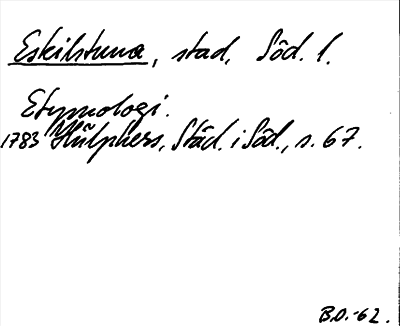 Eskilstuna, stad, Söd. l.
Etymologi.
1783 Hülphers, Städ. i Söd., s. 67.
B.O.-62.